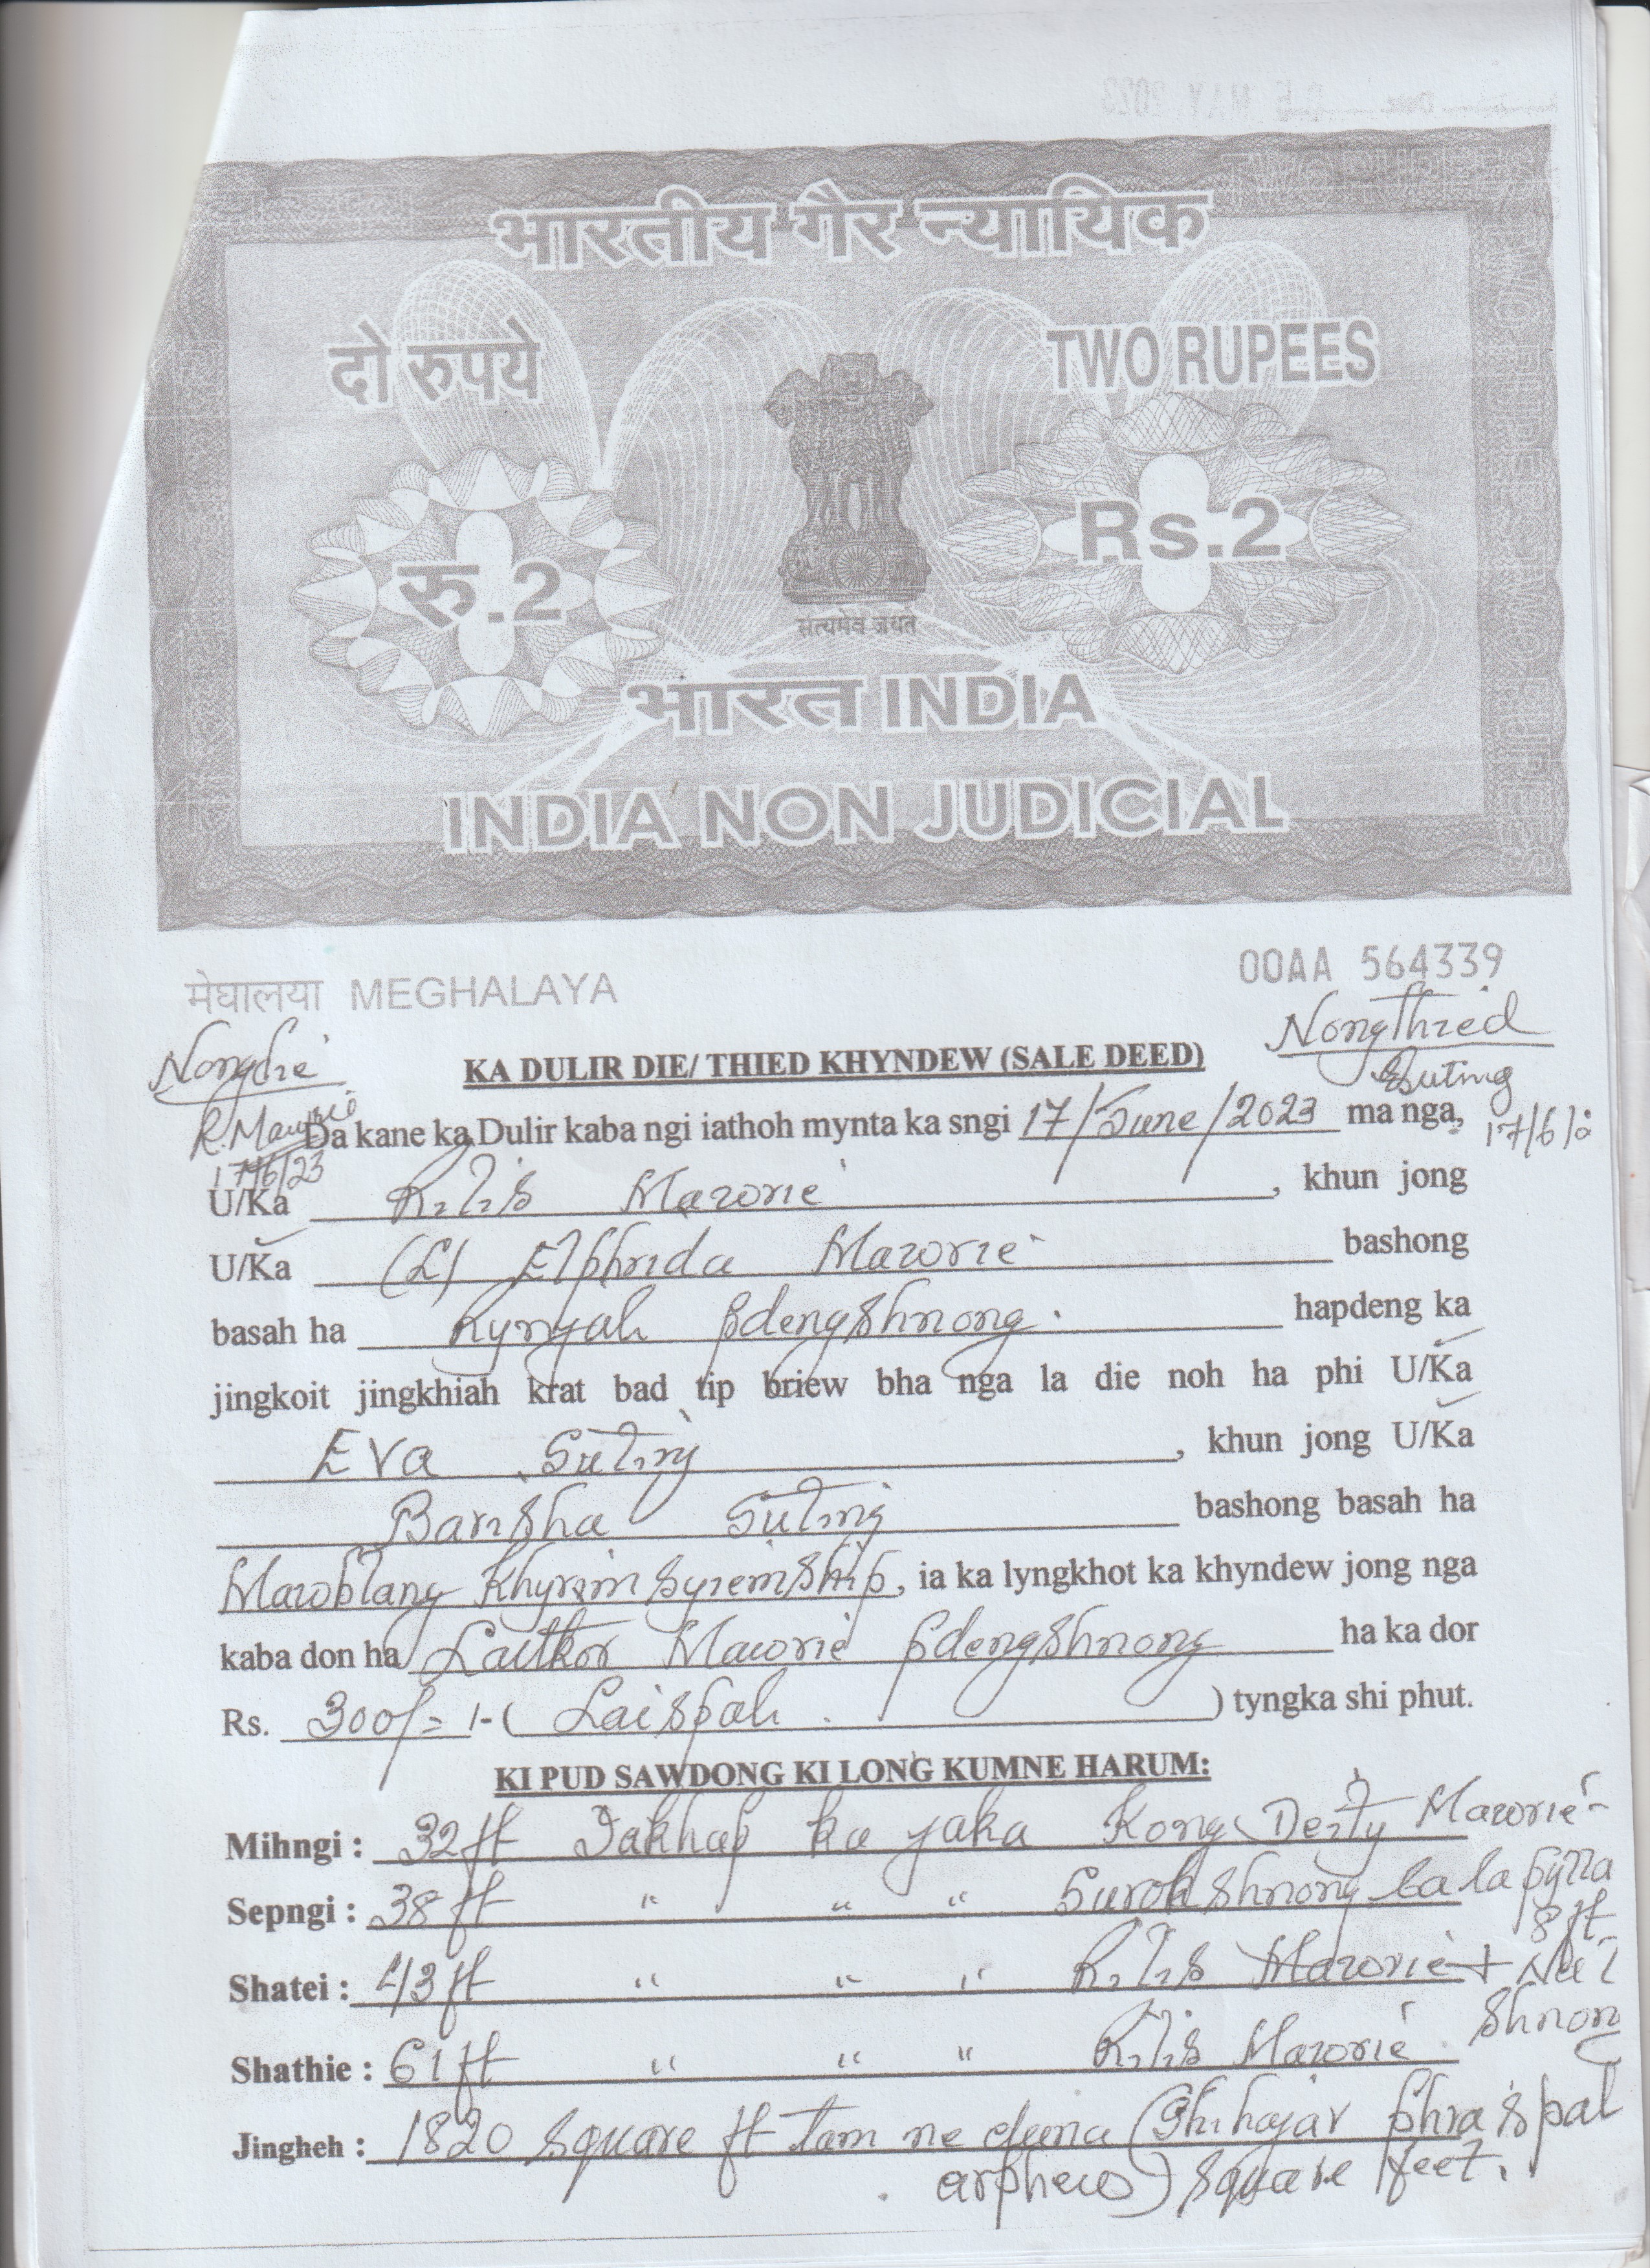 25 MAY 2023
भारतीय गैर न्यायिक
दो रुपये
TWO RUPEES
रु.2
Rs.2
सत्यमेव जयते
भारत INDIA
INDIA NON JUDICIAL
मेघालया MEGHALAYA
00AA 564339
Nongdie
NongThied
KA DULIR DIE/ THIED KHYNDEW (SALE DEED)
Esuting
R. Mawrie
Da kane ka Dulir kaba ngi iathoh mynta ka sngi 17/June/2023 ma nga,
17/6/23
17/6/
U/Ka Ritis Mawrie, khun jong
U/Ka (L) Elphrida Mawrie bashong
basah ha Kynjah Pdengshnong. hapdeng ka
jingkoit jingkhiah krat bad tip briew bha nga la die noh ha phi U/Ka
Eva Suting, khun jong U/Ka
Barisha Suting bashong basah ha
Mawblang Khyrim Syiemship, ia ka lyngkhot ka khyndew jong nga
kaba don ha Laitkor Mawrie Pdengshnong ha ka dor
Rs. 300/= /-( Laispah. ) tyngka shi phut.
KI PUD SAWDONG KI LONG KUMNE HARUM:
Mihngi : 32ft Iakhap ka jaka Kong Deity Mawrie
Sepngi : 38 ft " " " Surok shnong ba la pynra
8 ft
Shatei : 43 ft " " " Ritis Mawrie +
shnong
Shathie : 61 ft " " " Ritis Mawrie.
Jingheh : 1820 square ft tam ne duna (Shihajar phraispah
arphew) square feet.